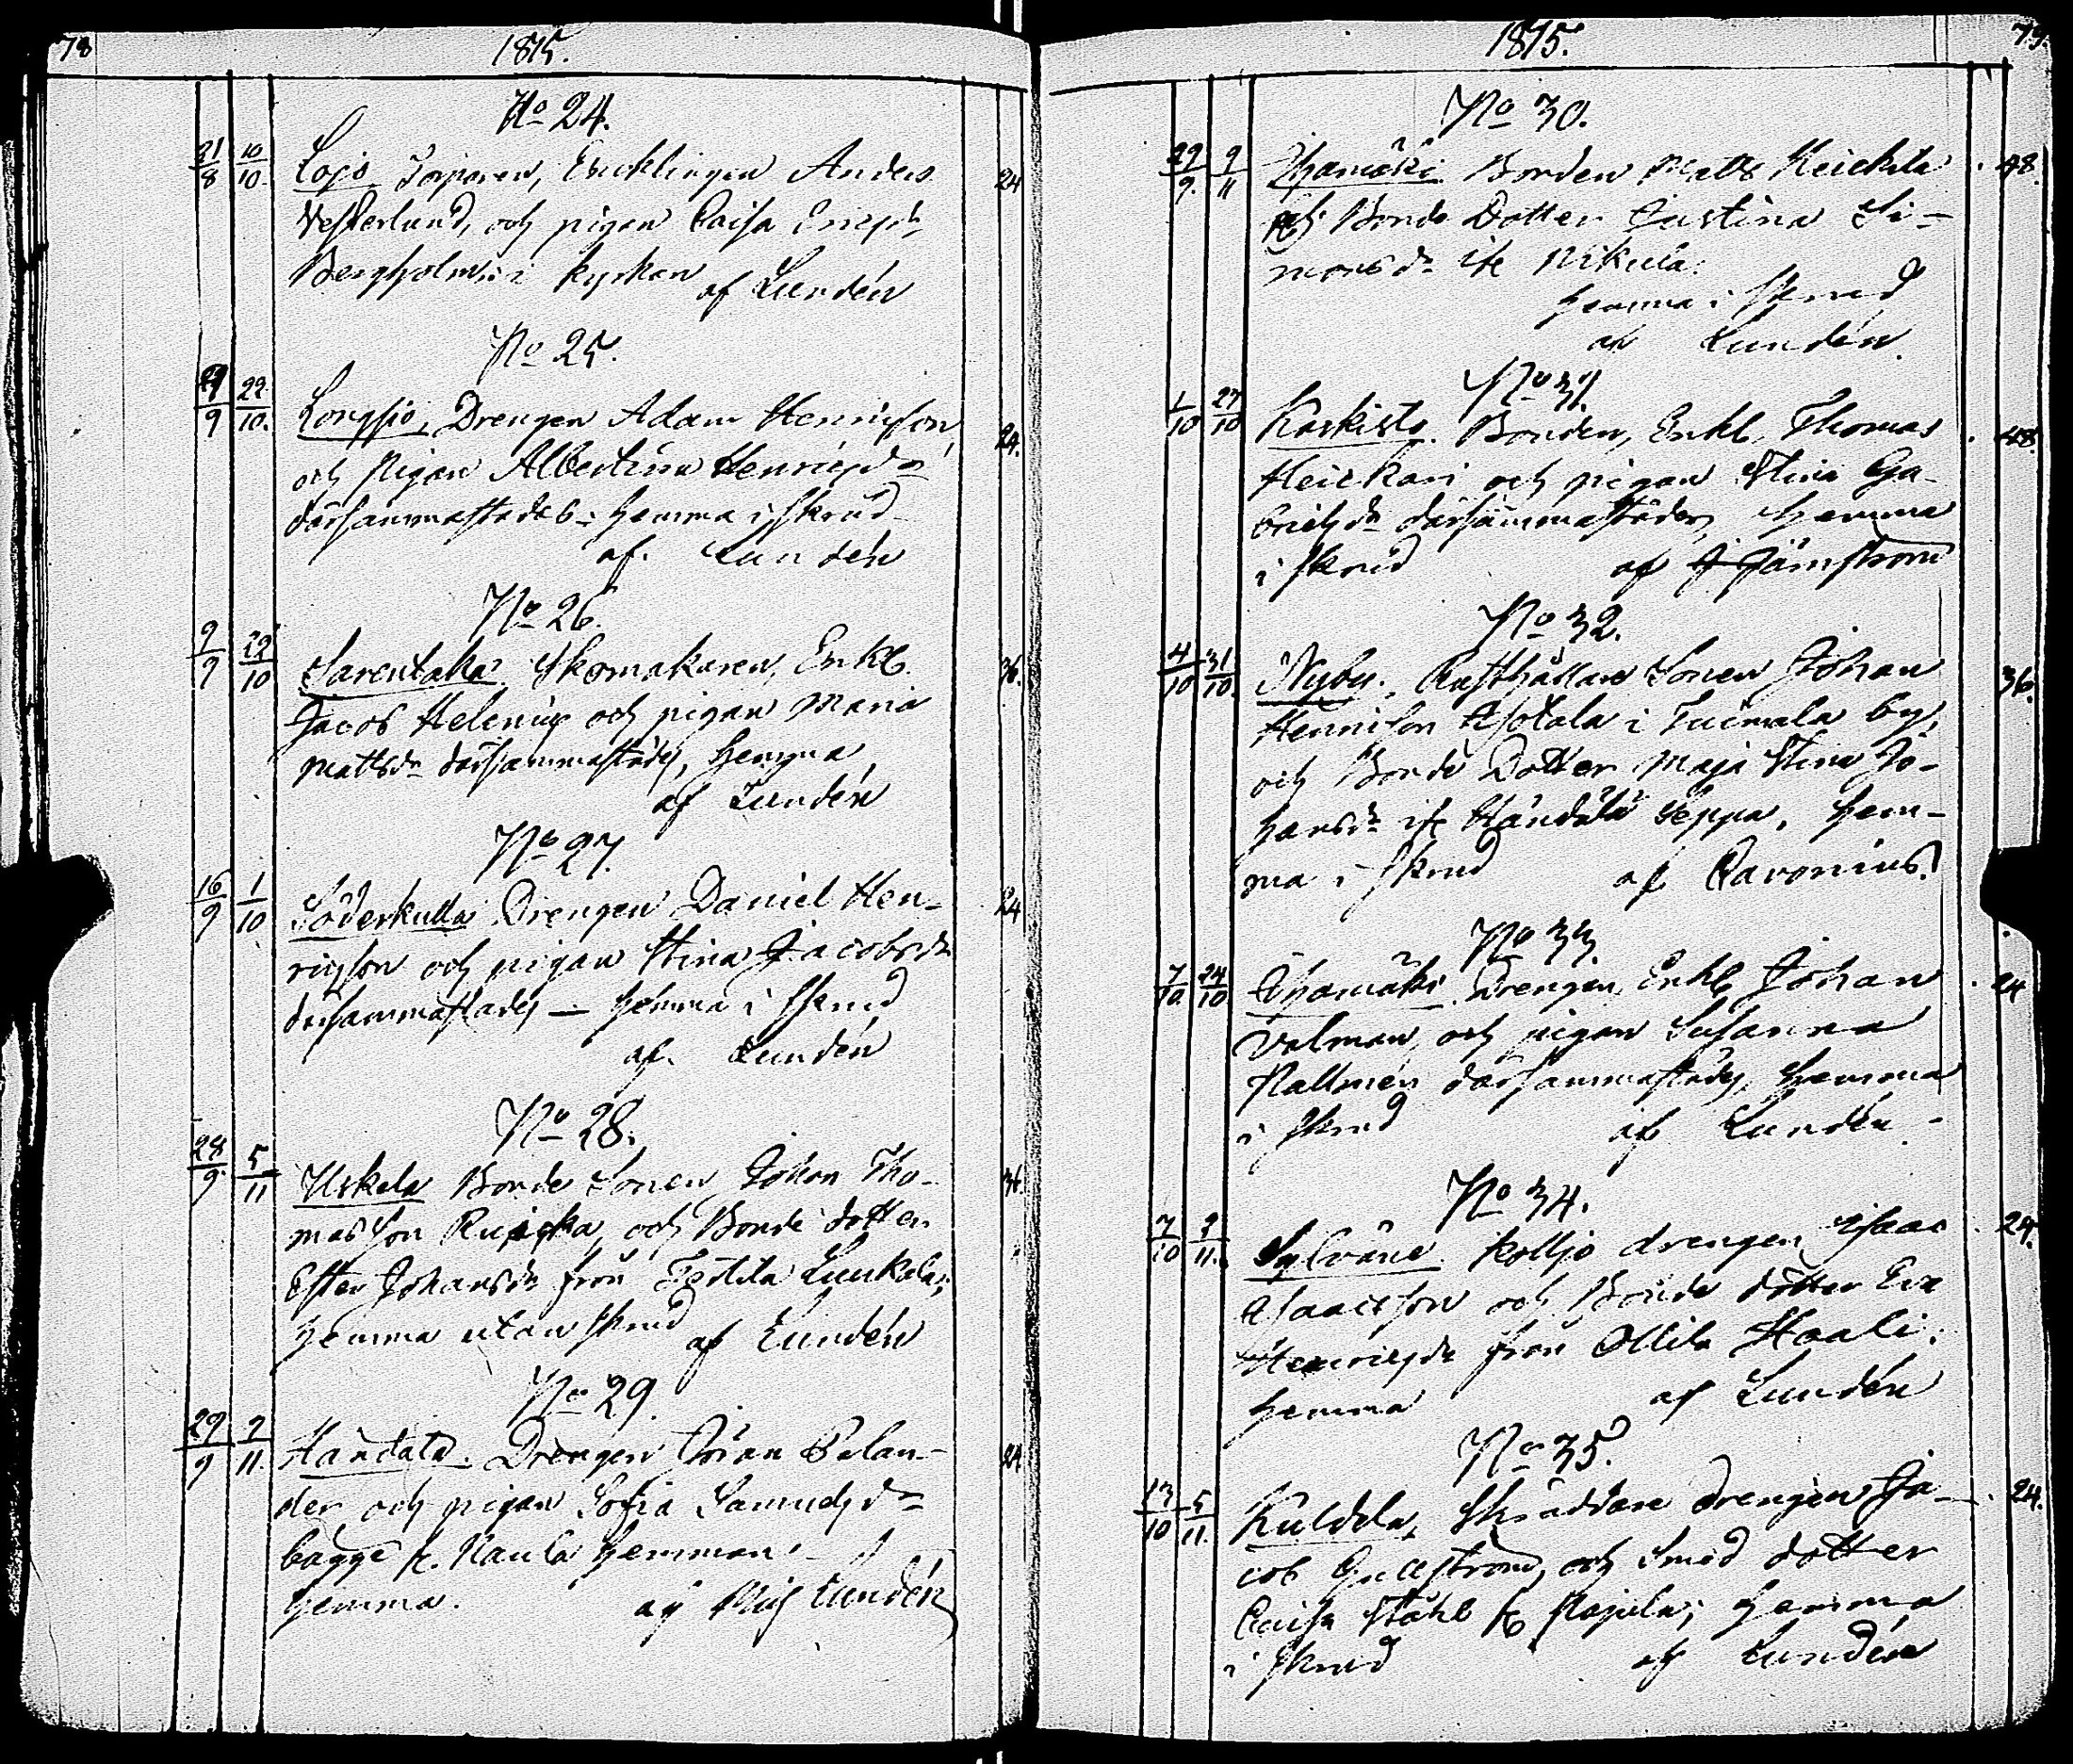 78
1815.
No 24.
21/8 10/10. Lojo Torparen, Encklingen Anders 24
Vesterlund, och pigan Caisa Ericsdr
Bergholm i kyrkan af Lundén
No 25.
9 22/10. Longsjo, Drengen Adam Henricsson 24.
och Pigan Albertina Henricsdr
därsammastädes hemma i skrud
af Lundén
No 26.
9/9 29/10 Sarentaka Skomakaren, Enkl. 36.
Jacob Helenius och pigan Maria
Mattsdr därsammastädes, hemma
af Lundén
No 27.
16/9 1/10 Söderkulla Drengen Daniel Hen- 24
ricsson och pigan Stina Jacobsdr
därsammastädes — hemma i skrud
af Lundén
No 28.
28/9 5/11 Uskela Bonde Sonen Johan Tho- 36.
masson och Bonde dotter
Ester Johansdr från Lunkala,
hemma utan skrud af Lundén
No 29.
29/9 9/11. Händälä. Drengen Göran Palan- 24
der och pigan Sofia Samuelsdr
bägge fr. Naula hemman
hemma. af Lundén
1815.
79.
No 30.
29/9. 9/11 Bonden Matts Heickila 48.
och Bonde Dotter Justina Si-
monsdr ifr Nikula.
hemma i skrud
af Lundén.
No 31.
1/10 27/10 Karkisto. Bonden, Enkl. Thomas 48.
Heickari och pigan Stina Ga-
brielsdr därsammastädes, hemma
i skrud af J Järnstrom
No 32.
4/10 31/10. Nyby. Rusthållare Sonen Johan 36.
Henricson i Tuimala by,
och Bonde Dotter Maja Stina Jo-
hansdr ifr Händälä Seppä, hem-
ma i skrud af Pavonius.
No 33.
7/10. 24/10 Drengen, Enkl. Johan 24
Valman, och pigan Susanna
Hallmén därsammastädes, hemma
i skrud af Lundén
No 34.
7/10 2/11. Sylväne kolljo drengen Isaac 24.
Isaacsson och Bonde dotter Eva
Henricsdr från Ollila Haali.
hemma af Lundén
No 35.
13/10 5/11. Kuldila, Skräddare drengen Ja- 24.
cob Gullstrom, och Smed dotter
Caisa Ståhl fr Rajula; hemma
i skrud af Lundén